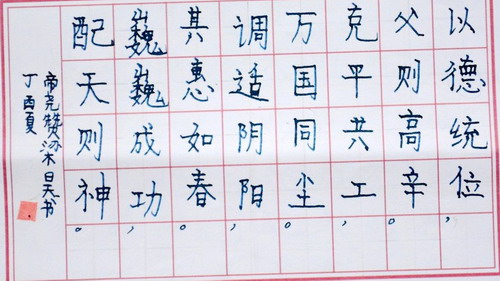 以德统位，
父则高辛。
克平共工，
万国同尘。
调适阴阳，
其惠如春。
巍巍成功，
配天则神。
帝尧赞梁昊书
丁酉夏